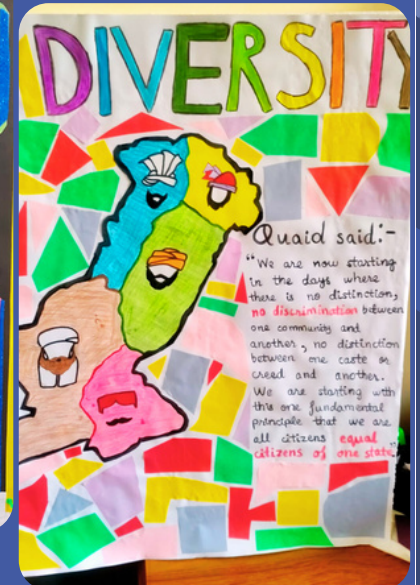 DIVERSITY
Quaid said:-
"We are now starting
in the days where
there is no distinction,
no discrimination between
one community and
another, no distinction
between one caste or
creed and another.
We are starting with
this one fundamental
principle that we are
all citizens equal
citizens of one state."